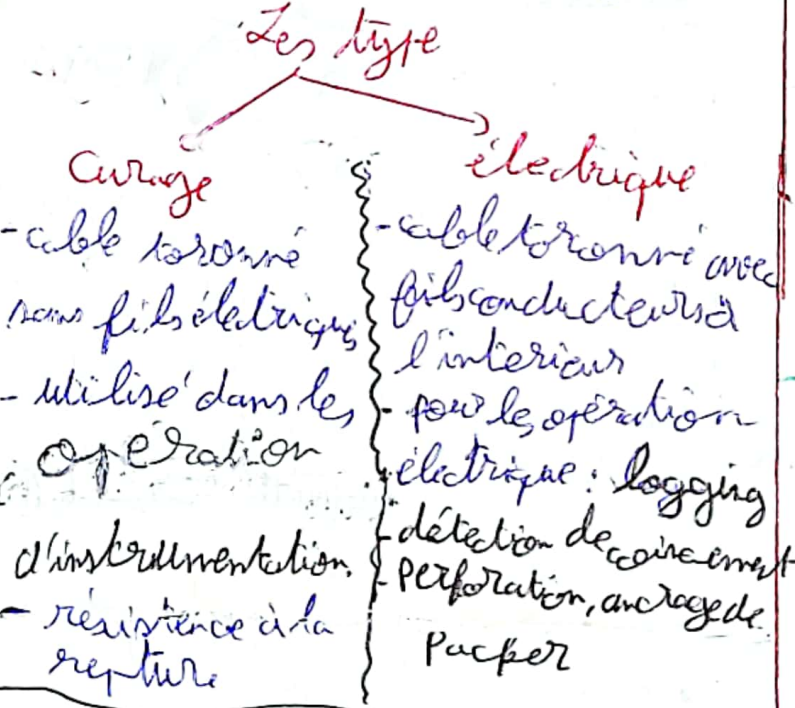 Les type
Curage
- cable toronné
sans fils électriques
- utilisé dans les
opération
d'instrumentation.
- résistence à la
repture
électrique
- cable toronné avec
fils conducteurs à
l'interieur
- pour les opération
électrique : logging
- détection de coincement
- Perforation, ancrage de
Packer